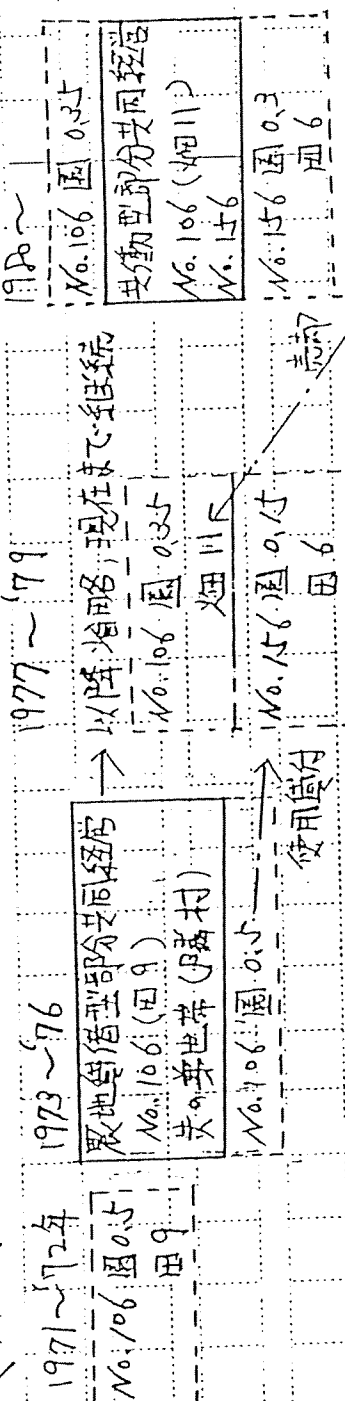 1971～'72年
No.106 園 0.5
田 9
1973～'76
農地賃借型部分共同経営
No.106 (田9)
共の弟世帯 (隣村)
No.106 園 0.5
使用貸付
1977～'79
→ 以降省略, 現在まで継続
No.106 園 0.35
畑 11
No.156 園 0.15
田 6
売却
1980～
No.106 園 0.35
共働型部分共同経営
No.106 (畑11)
No.156
No.156 園 0.3
田 6